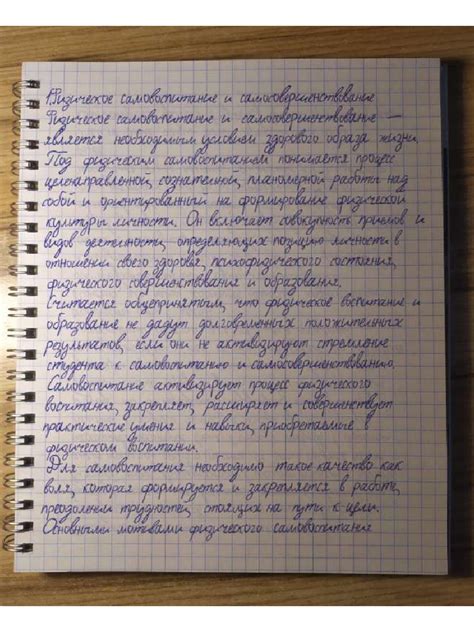 1.Физическое самовоспитание и самосовершенствование
Физическое самовоспитание и самосовершенствование —
является необходимым условием здорового образа жизни.
Под физическим самовоспитанием понимается процесс
целенаправленной, сознательной, планомерной работы над
собой и ориентированный на формирование физической
культуры личности. Он включает совокупность приемов и
видов деятельности, определяющих позицию личности в
отношении своего здоровья, психофизического состояния,
физического совершенствования и образования.
Считается общепринятым, что физическое воспитание и
образование не дадут долговременных положительных
результатов, если они не активизируют стремление
студента к самовоспитанию и самосовершенствованию.
Самовоспитание активизирует процесс физического
воспитания, закрепляет, расширяет и совершенствует
практические умения и навыки, приобретаемые в
физическом воспитании.
Для самовоспитания необходимо такое качество как
воля, которая формируется и закрепляется в работе,
преодолении трудностей, стоящих на пути к цели.
Основными мотивами физического самовоспитания